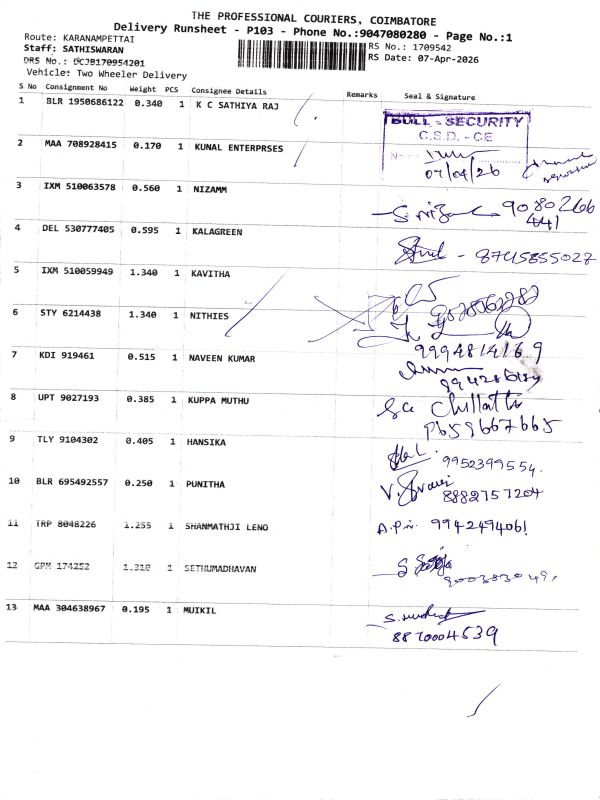 THE PROFESSIONAL COURIERS, COIMBATORE
Delivery Runsheet - P103 - Phone No.:9047080280 - Page No.:1
Route: KARANAMPETTAI
RS No.: 1709542
Staff: SATHISWARAN
RS Date: 07-Apr-2026
DRS No.: DCJB170954201
Vehicle: Two Wheeler Delivery
S No Consignment No Weight PCS Consignee Details Remarks Seal & Signature
1 BLR 1950686122 0.340 1 K C SATHIYA RAJ
BULL - SECURITY
C.S.D. - CE
2 MAA 708928415 0.170 1 KUNAL ENTERPRSES
07/04/26
3 IXM 510063578 0.560 1 NIZAMM
90802166
441
4 DEL 530777405 0.595 1 KALAGREEN
8745855027
5 IXM 510059949 1.340 1 KAVITHA
6 STY 6214438 1.340 1 NITHIES
9994814169
7 KDI 919461 0.515 1 NAVEEN KUMAR
8 UPT 9027193 0.385 1 KUPPA MUTHU
9659667665
9 TLY 9104302 0.405 1 HANSIKA
9952399554.
10 BLR 695492557 0.250 1 PUNITHA
8882757204
11 TRP 8048226 1.255 1 SHANMATHJI LENO
A.P.n. 9942494061
12 GPM 174252 1.310 1 SETHUMADHAVAN
13 MAA 304638967 0.195 1 MUIKIL
8870004539